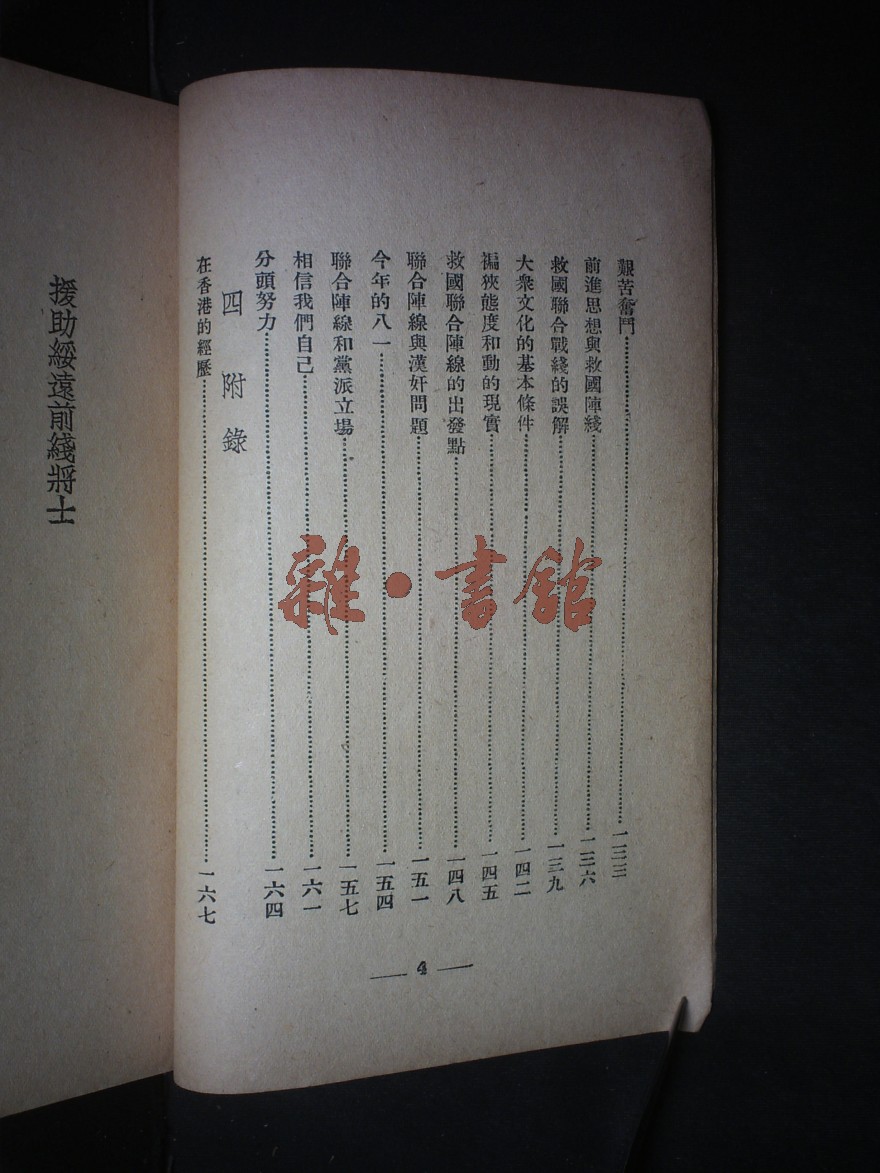 艱苦奮鬥……一三三
前進思想與救國陣綫……一三六
救國聯合戰綫的誤解……一三九
大衆文化的基本條件……一四二
褊狹態度和動的現實……一四五
救國聯合陣線的出發點……一四八
聯合陣線與漢奸問題……一五一
今年的八一……一五四
聯合陣線和黨派立場……一五七
相信我們自己……一六一
分頭努力……一六四
四 附錄
在香港的經歷……一六七
— 4 —
援助綏遠前綫將士
雜·書館